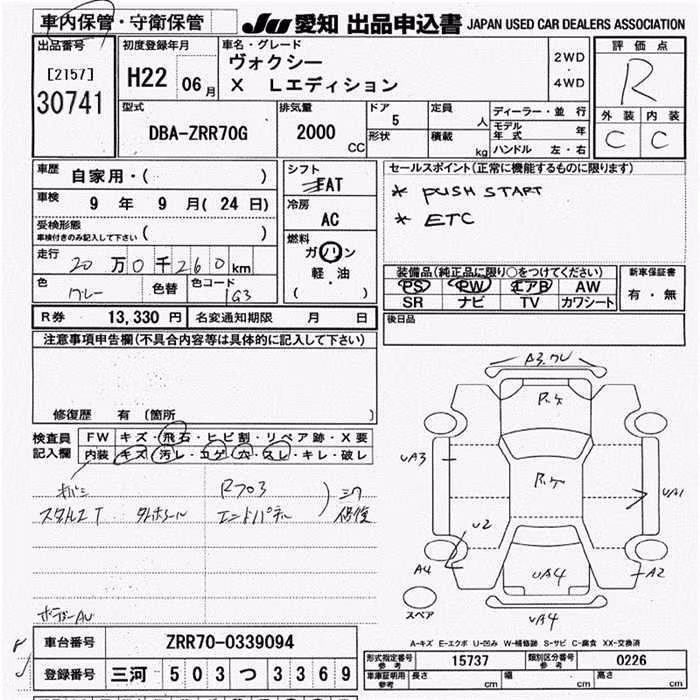 車内保管・守衛保管
JU 愛知 出品申込書 JAPAN USED CAR DEALERS ASSOCIATION
出品番号
[2157]
30741
初度登録年月
H22 06月
車名・グレード
ヴォクシー
X Lエディション
2WD
・
4WD
評価点
R
外装 内装
C C
型式
DBA-ZRR70G
排気量
2000
CC
ドア
5
形状
定員
人
積載
kg
ディーラー・並行
モデル年式 年
ハンドル 左・右
車歴
自家用・( )
車検
9 年 9 月( 24 日)
受検形態
車検付きのみ記入して下さい ( )
走行
20 万 0 千 260 km
色
グレー
色替
色コード
1G3
シフト
FAT
冷房
AC
燃料
ガソリン
軽・油
( )
セールスポイント(正常に機能するものに限ります)
* PUSH START
* ETC
装備品(純正品に限り○をつけてください)
PS PW エアB AW
SR ナビ TV カワシート
新車保証書
有・無
後日品
R券 13,330 円 名変通知期限 月 日
注意事項申告欄(不具合内容等は具体的に記入して下さい)
修復歴 有 〔箇所 〕
検査員記入欄
FW キズ・飛石・ヒビ割・リペア跡・X要
内装 キズ・汚レ・コゲ・穴・スレ・キレ・破レ
エンドパネル
A3
UA3
UA1
U2
A4
UA4
A2
UA4
スペア
A-キズ E-エクボ U-凹み W-補修跡 S-サビ C-腐食 XX-交換済
車台番号 ZRR70-0339094
登録番号 三河 503 つ 3369
型式指定番号 参考 15737 類別区分番号 参考 0226
車庫証明用 参考 長さ cm 幅 cm 高さ cm